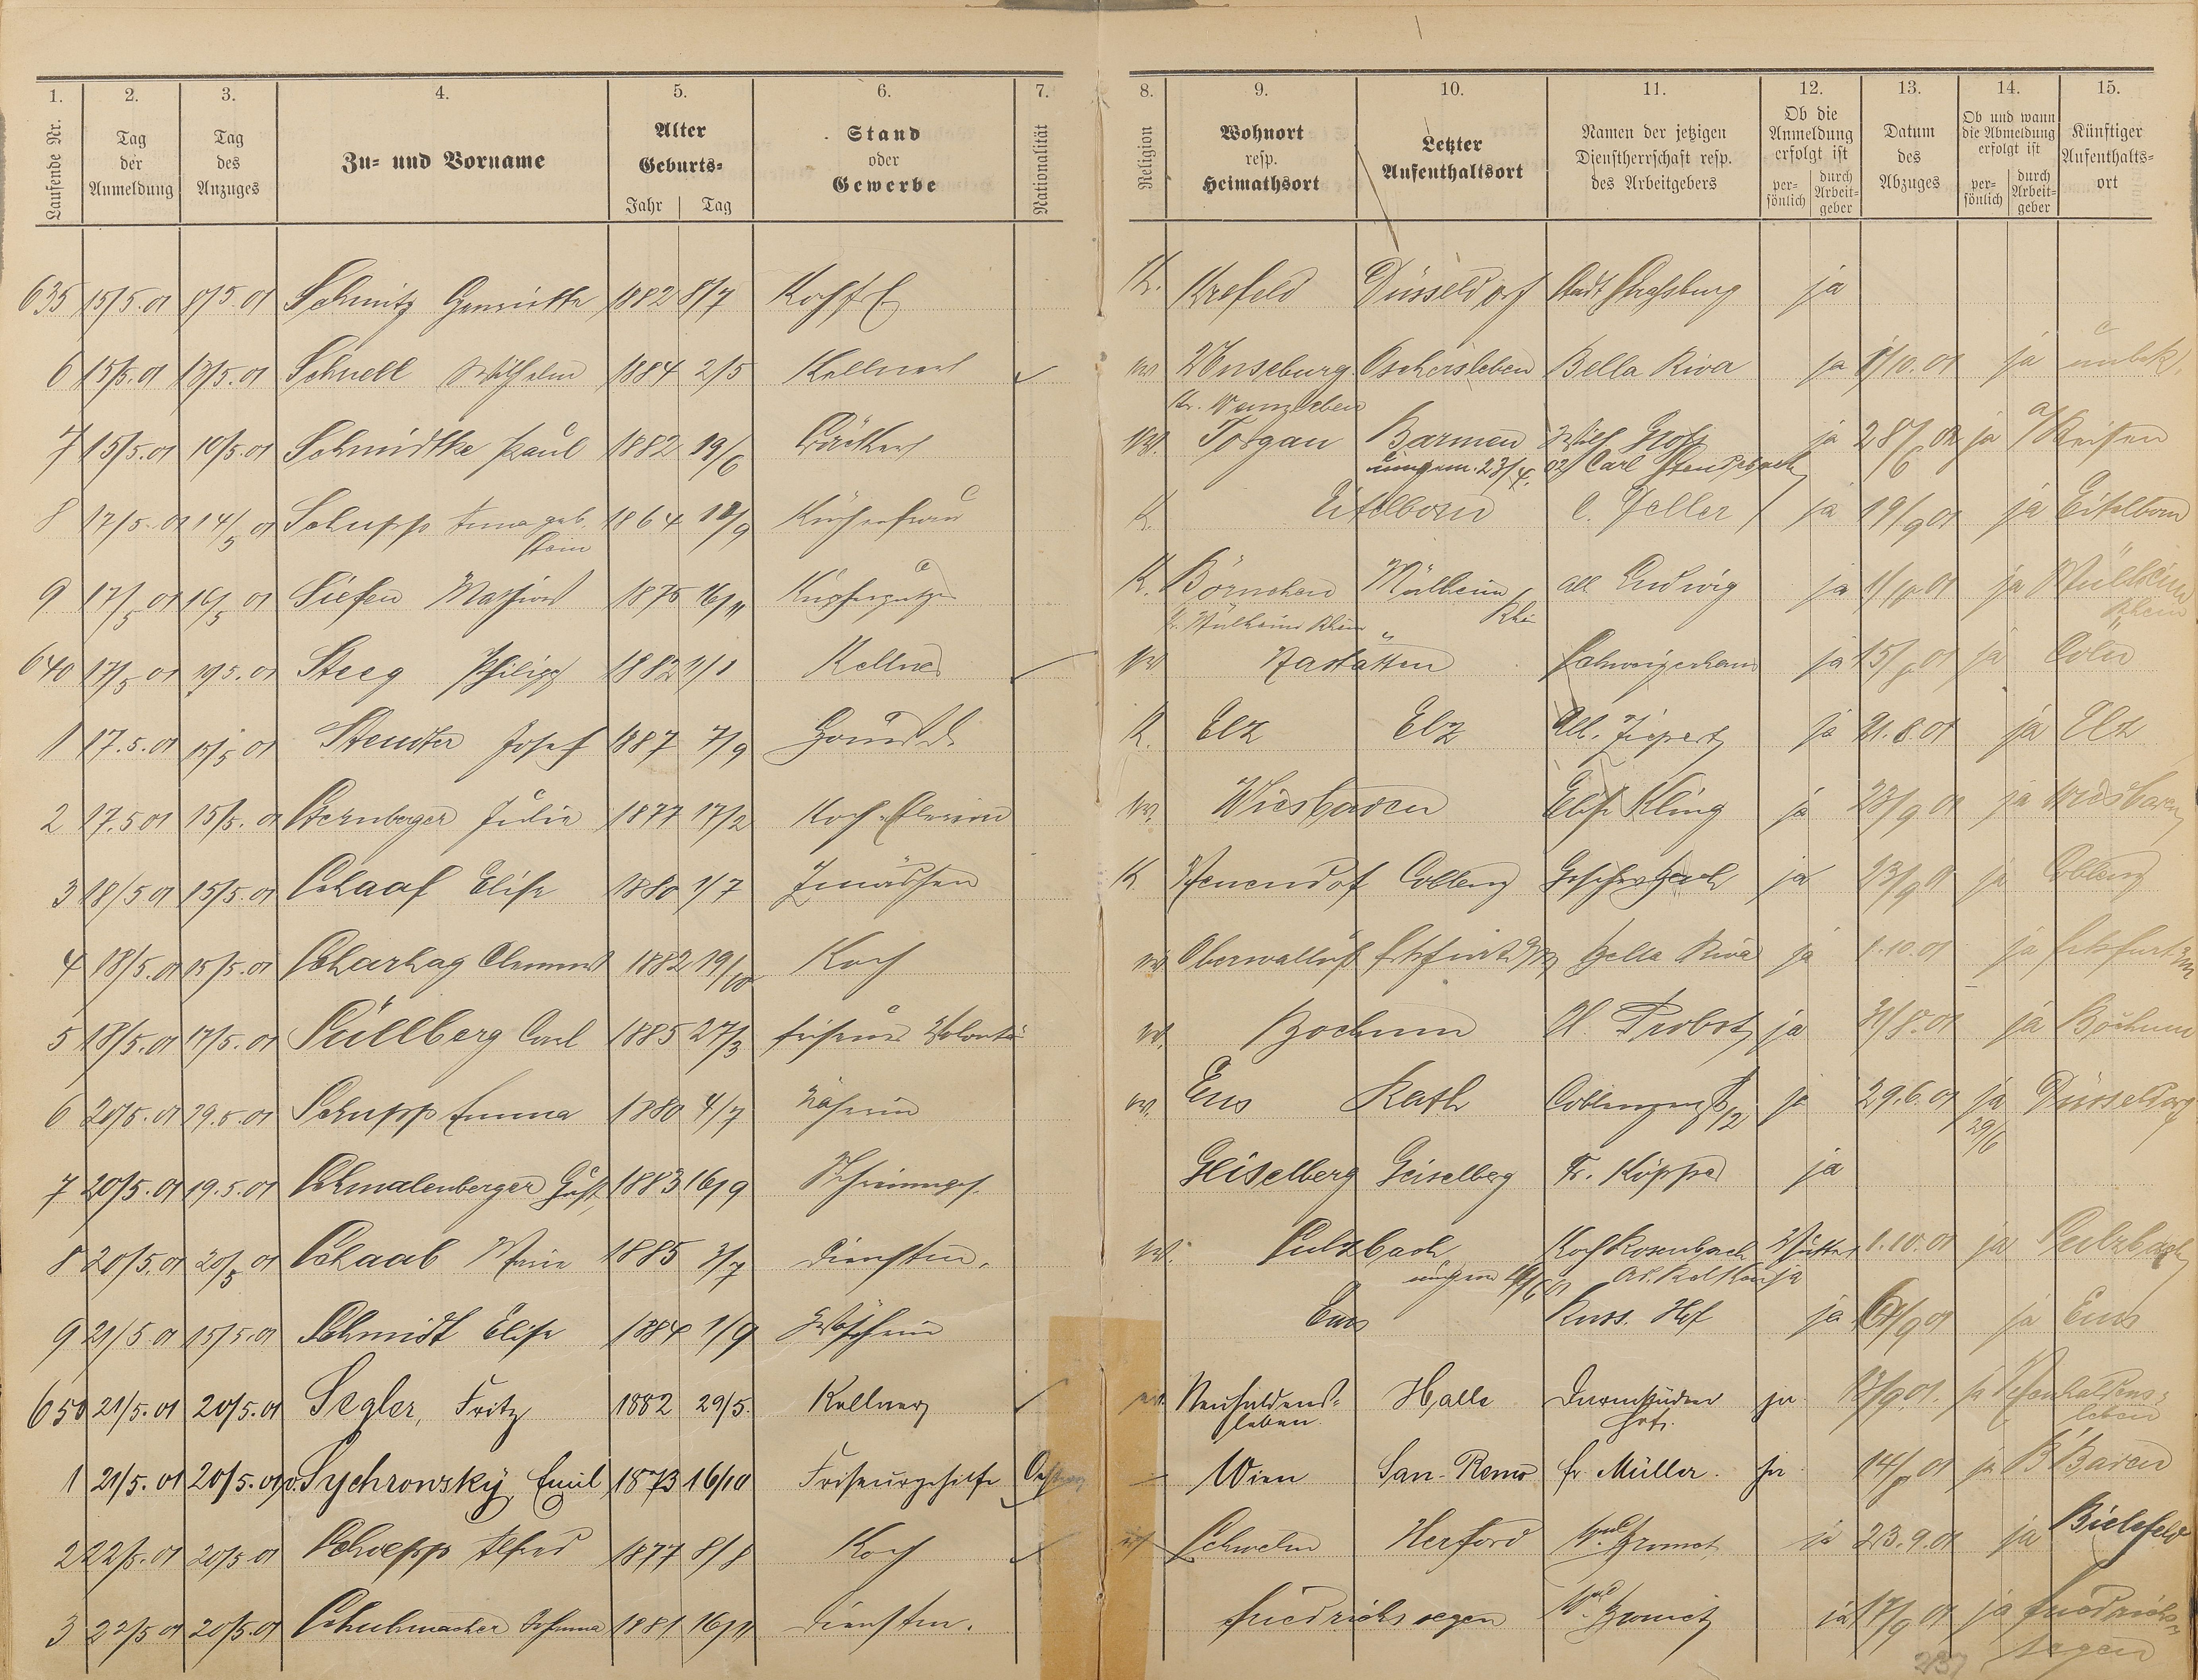 1. 2. 3. 4. 5. 6. 7. 8. 9. 10. 11. 12. 13. 14. 15.
Laufende Nr. Tag der Anmeldung Tag des Anzuges Zu- und Vorname Alter Geburts- Jahr Tag Stand oder Gewerbe Nationalität Religion Wohnort resp. Heimathsort Letzter Aufenthaltsort Namen der jetzigen Dienstherrschaft resp. des Arbeitgebers Ob die Anmeldung erfolgt ist per- sönlich durch Arbeit- geber Datum des Abzuges Ob und wann die Abmeldung erfolgt ist per- sönlich durch Arbeit- geber Künftiger Aufenthalts- ort
635 15/5.01 8/5.01 Schmitz Henriette 1882 8/7 Kochfrl K. Krefeld Düsseldorf Stadt Straßburg ja
6 15/5.01 13/5.01 Schnell Wilhelm 1884 2/5 Kellner Oschersleben Bella Riva ja 1/10.01 ja unbek.
Kr. Wanzleben
7 15/5.01 10/5.01 Schmidtke Paul 1882 19/6 Bäcker Torgau Barmen ja 28/6 02 ja a/Reisen
23/4. 02 Carl
8 17/5.01 14/5 01 Schupp Anna geb. 1864 18/9 Küchenfrau K. Eitelborn C. Zeller ja 19/9 01 ja Eitelborn
Stein
9 17/5 01 16/5 01 Siefen Mathias 1875 16/11 Kupferputzer K. Börnchen Mülheim Ludwig ja ja Mülheim
Kr. Mülheim Rhein Rhein Rhein
640 17/5 01 Steeg Philipp 1882 1/1 Kellner Nastätten ja ja Cöln
1 17.5.01 15/5 01 Steudter Josef 1887 7/9 Hausd. K. Elz Elz ja 21.8.01 ja Elz
2 17.5 01 15/5.01 Sternberger Julie 1877 17/2 Wiesbaden Elise Kling ja 28/9 01 ja Wiesbaden
3 18/5 01 15/5.01 Schaaf Elise 1880 1/7 Zmädchen K Coblenz ja 23/9 01 ja Coblenz
4 18/5.01 15/5.01 Scharhag Clemens 1882 19/10 Koch Oberwalluf Frkfurt a/M Bella Riva ja 1.10.01 ja Frkfurt a/M
5 18/5.01 17/5.01 Süllberg Carl 1885 27/3 Friseur Volontär Bochum H. Probst ja 31/8.01 ja Bochum
6 20/5.01 Schupp Emma 1880 4/7 Näherin Ems Rath ja 29.6.01 ja Düsseldorf
29/6
7 20/5.01 19.5.01 Schmalenberger Gust. 1883 16/9 Schreinerges. Geiselberg Geiselberg Fr. Köpper ja
8 20/5.01 20/5 01 Schaab Marie 1885 3/7 Dienstm. Sulzbach Rosenbach Mutter 1.10.01 ja Sulzbach
ja
9 21/5 01 15/5.01 Schmidt Elise 1884 1/9 Ems Russ. Hof ja ja Ems
650 21/5.01 20/5.01 Segler, Fritz 1882 29/5. Kellner Neuhaldens- Halle Darmstädter ja 01. ja Neuhaldens-
leben. Hof. leben
1 21/5.01 20/5.01 v. Sychrowsky Emil 1873 16/10 Friseurgehilfe Wien San-Remo fr. Müller. ja ja B'Baden
2 22/5.01 20/5 01 Schoepp Alfred 1877 8/8 Koch Schwelm Herford ja 23.9.01 ja Bielefeld
3 22/5 01 20/5.01 Schuhmacher 1881 16/11 Dienstm. Friedrichssegen ja 17/9 01 ja Friedrichs-
segen